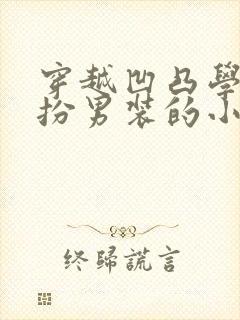 穿越凹凸學
扮男裝的小
终歸謊言